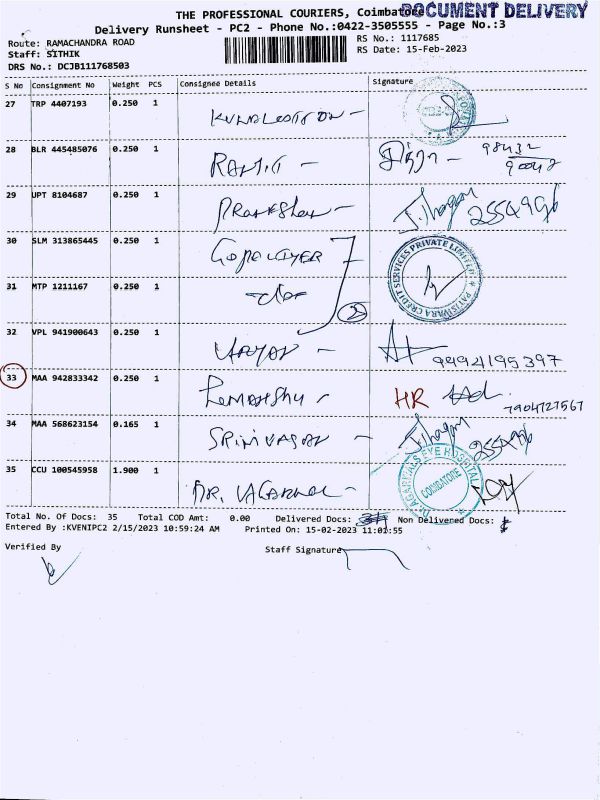 THE PROFESSIONAL COURIERS, Coimbatore
DOCUMENT DELIVERY
Delivery Runsheet - PC2 - Phone No.:0422-3505555 - Page No.:3
Route: RAMACHANDRA ROAD
RS No.: 1117685
Staff: SITHIK
RS Date: 15-Feb-2023
DRS No.: DCJB111768503
S No Consignment No Weight PCS Consignee Details Signature
27 TRP 4407193 0.250 1
28 BLR 445485076 0.250 1
RANJIT - 98432
29 UPT 8104687 0.250 1
2554996
30 SLM 313865445 0.250 1
GOPALIYER
PATISWARA CREDIT SERVICES PRIVATE LIMITED
31 MTP 1211167 0.250 1
-do-
2
32 VPL 941900643 0.250 1
99942195397
33 MAA 942833342 0.250 1
HR
7904727567
34 MAA 568623154 0.165 1
SRINIVASAN -
35 CCU 100545958 1.900 1
DR. AGARWAL -
Dr. AGARWALS EYE HOSPITAL
COIMBATORE
Total No. Of Docs: 35 Total COD Amt: 0.00 Delivered Docs: Non Delivered Docs:
Entered By :KVENIPC2 2/15/2023 10:59:24 AM Printed On: 15-02-2023 11:01:55
Verified By Staff Signature